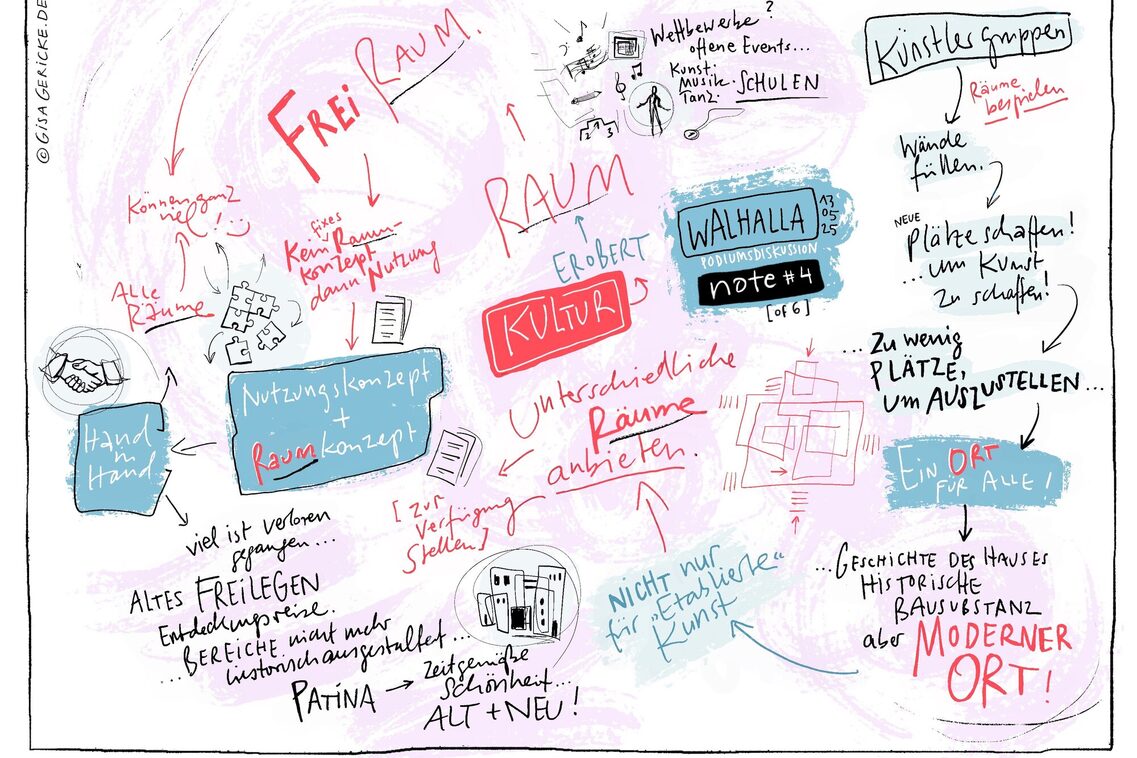 © GISAGERICKE.DE
FREI RAUM.
Können ganz
viel!
ALLE
RÄUME
fixes
Kein Raum-
konzept
dann Nutzung
Nutzungskonzept
+
Raumkonzept
Hand
in
Hand
viel ist verloren
gegangen...
ALTES FREILEGEN
Entdeckungsreise.
BEREICHE nicht mehr
... historisch ausgestaltet...
PATINA → Zeitgemäße
Schönheit...
ALT + NEU!
Wettbewerbe?
offene Events...
Kunst·
Musik·
Tanz· SCHULEN
2 1 3
RAUM
EROBERT
KULTUR
WALHALLA
13
05
25
PODIUMSDISKUSSION
note #4
[of 6]
Unterschiedliche
Räume
anbieten.
[Zur
Verfügung
Stellen]
NICHT nur
für „Etablierte“
Kunst
Künstlergruppen
Räume
bespielen
Wände
füllen.
NEUE
Plätze schaffen!
... um Kunst
zu schaffen!
... Zu wenig
PLÄTZE,
um AUSZUSTELLEN...
EIN ORT
FÜR ALLE!
...GESCHICHTE DES HAUSES
HISTORISCHE
BAUSUBSTANZ
aber MODERNER
ORT!